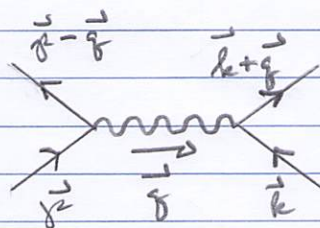 p⃗ - q⃗
k⃗ + q⃗
p⃗
q⃗
k⃗